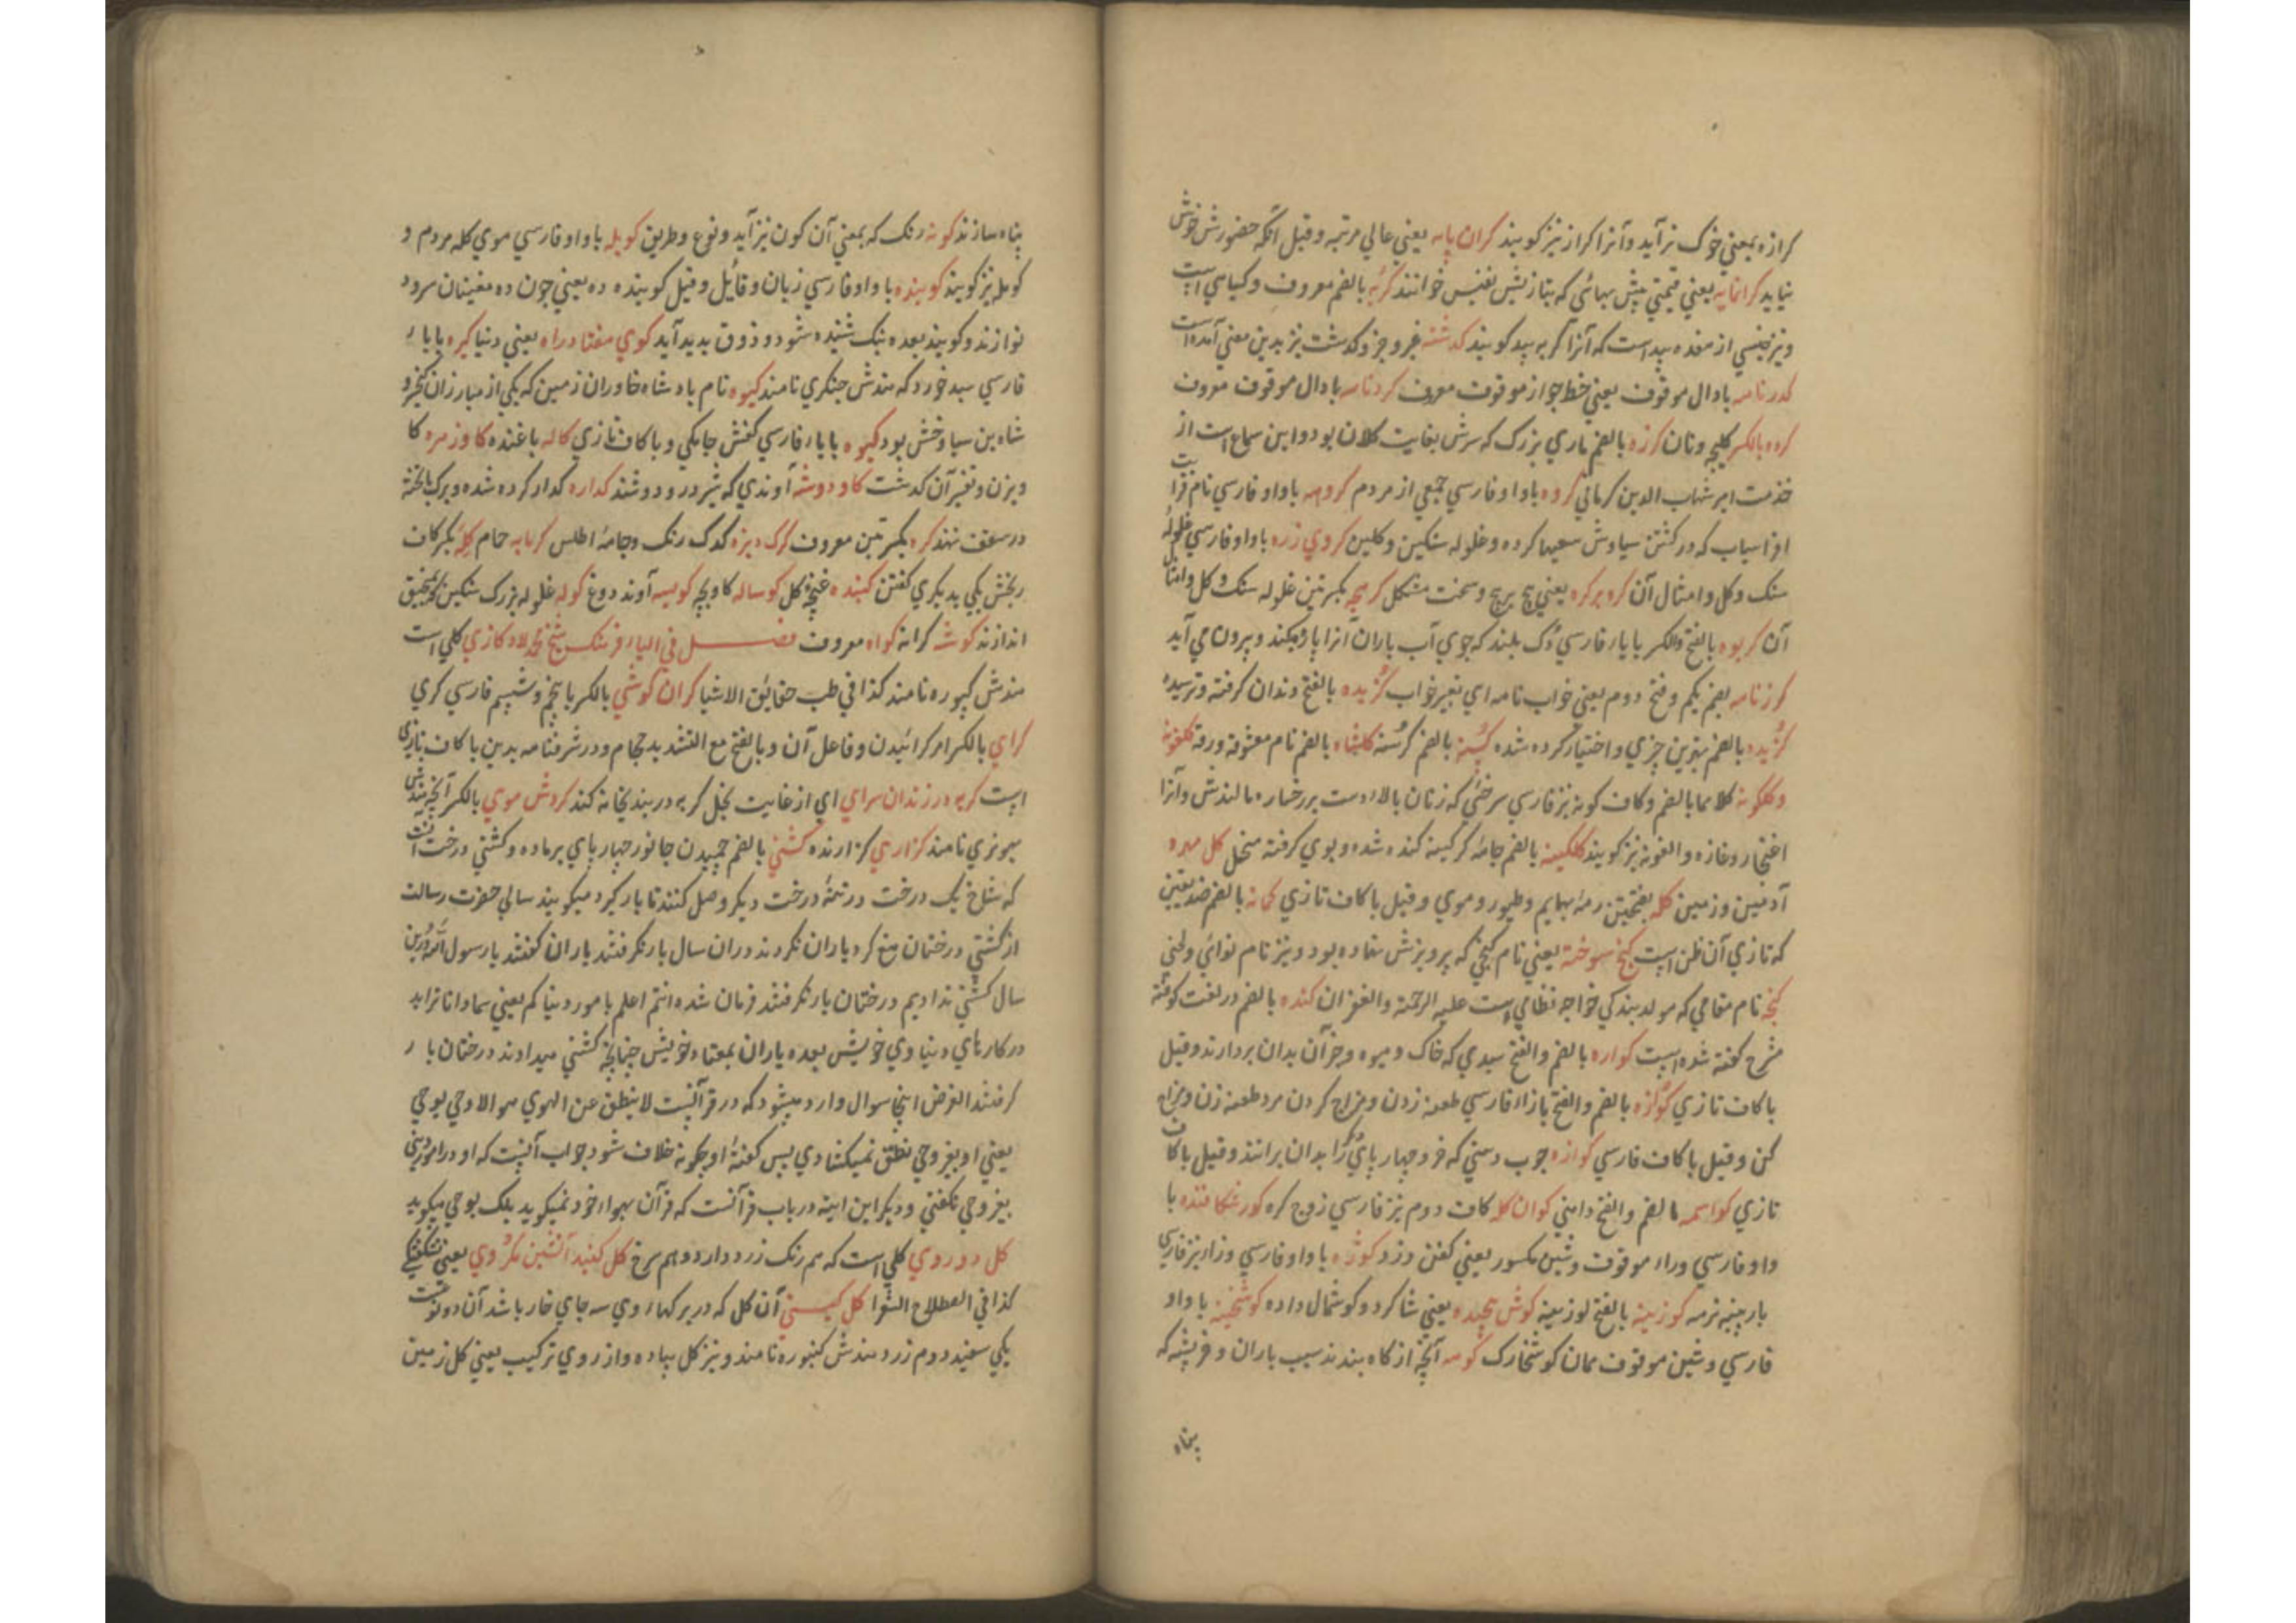 کرازه بمعنی خوک نر آید و آنرا کراز نیز کویند کران پایه یعنی عالی مرتبه و قیل آنکه حضورش خوش
نیاید کرانمایه یعنی قیمتی بیش بهائی که بتازیش نفیس خوانند کربه بالضم معروف و کیاهی است
و نیز جنسی از هفده بید است که آنرا کربه بید کویند کذشته غیر و جز و کذشت نیز بدین معنی آمده است
کذرنامه با دال موقوف یعنی خط جواز موقوف معروف کردنامه با دال موقوف معروف
کرده بالکسر کلیچه و نان کرزه بالضم ماری بزرک که سرش بغایت کلان بود و این سماع است از
خدمت امیر شهاب الدین کرمانی کروه باواو فارسی جمعی از مردم کرویه باواو فارسی نام قرابت
افراسیاب که در کشتن سیاوش سعیها کرده و غلوله سنکین و کلین کروی زره باواو فارسی غلوله
سنک و کل و امثال آن کره بر کره یعنی پیچ بر پیچ و سخت مشکل کرهچه بکسرتین غلوله سنک و کل و امثال
آن کریوه بالفتح والکسر بایاء فارسی دک بلند که جوی آب باران آنرا پاره کند و بیرون می آید
کرزنامه بضم یکم و فتح دوم یعنی خواب نامه ای تعبیر خواب کزیده بالفتح دندان کرفته و ترسیده
کزیده بالضم بهترین چیزی و اختیار کرده شده کسنه بالضم کرسنه کلشاه بالضم نام معشوقه ورقه کلغونه
و کلکونه کلاهما بالضم و کاف کونه نیز فارسی سرخئی که زنان بالاء دست بر رخساره مالندش و آنرا
اغنجار و غازه و الغونه نیز کویند کلکینه بالضم جامه کر کینه کنده شده و بوی کرفته منحل کل مهره
آدمین و زمین کله بفتحتین رمه بهایم و طیور و موی و قیل با کاف تازی کمانه بالضم ضد یقین
که تازی آن ظن است کنج سوخته یعنی نام کنجی که پرویزش نهاده بود و نیز نام نوائی و لحنی
کنجه نام مقامی که مولد بندکی خواجه نظامی است علیه الرحمة والغفران کنده بالضم در لغت کوفته
مشرح کفته شده است کواره بالضم والفتح سبدی که خاک و میوه و جز آن بدان بردارند و قیل
با کاف تازی کوازه بالضم والفتح بازاء فارسی طعنه زدن و مزاح کردن مرد طعنه زن و مزاح
کن و قیل با کاف فارسی کوازه چوب دستی که خر و چهارپای دکر را بدان برانند و قیل با کاف
تازی کواسمه بالضم والفتح دامنی کوان کله کاف دوم نیز فارسی زوج کره کورشکافنده با
واو فارسی وراء موقوف و شین مکسور یعنی کفن دزد کوژه باواو فارسی و زاء نیز فارسی
بار پنبه نرمه کوزینه بالفتح لوزینه کوش پیچیده یعنی شاکرد و کوشمال داده کوشخینه باواو
فارسی و شین موقوف همان کوشخارک کومه آنچه از کاه بندند سبب باران و خربشته که
پناه
پناه سازند کونه رنک که بمعنی آن کون نیز آید و نوع و طریق کویله باواو فارسی موی کله مردم و
کوپله نیز کویند کوینده باواو فارسی زبان و قایل و قیل کوینده ده یعنی چون ده مغنیان سرود
نوازند و کویند بعده نیک شنیده شود و ذوق پدید آید کوی هفتاد راه یعنی دنیا کیره بایاء
فارسی سبد خورد که هندش چنکری نامند کیوه نام پادشاه خاوران زمین که یکی از مبارزان کیخسرو
شاه بن سیاوخش بود کیوه بایاء فارسی کفش جامکی و با کاف تازی کاله باغنده کاوزهره کا
ویزن و تفسیر آن کذشت کاودوشه آوندی که شیر درو دوشند کداره کدار کرده شده و برک تخته
در سقف نهند کره بکسرتین معروف کرک دیزه کدک رنک و جامه اطلس کرمابه حمام کله بکسر کاف
رنجش یکی بدیکری کفتن کنبده غنچه کل کوساله کاو بچه کویسه آوند دوغ کوله غلوله بزرک سنکین که بمنجنیق
اندازند کوشه کرانه کواه معروف فصل فی الیاء فرهنک شیخ محمد لاد کازی کلی است
هندش کیوره نامند کذا فی طب حقایق الاشیا کران کوشی بالکسر با پنجم و ششم فارسی کری
کرای بالکسر امر کرائیدن و فاعل آن و بالفتح مع التشدید حجام و در شرفنامه بدین با کاف تازی
است کربه در زندان سرای ای از غایت بخل کربه در بندیخانه کند کردش موی بالکسر آنچه هندش
بهونری نامند کزاری کزارنده کشنی بالضم چمیدن جانور چهارپای بر ماده و کشنی درخت آنست
که شاخ یک درخت در تنه درخت دیکر وصل کنند تا بار کیرد میکویند سالی حضرت رسالت
از کشنی درختان منع کرد یاران نکردند دران سال بار نکرفتند یاران کفتند یا رسول الله درین
سال کشنی ندادیم درختان بار نکرفتند فرمان شد انتم اعلم بامور دنیاکم یعنی شما دانا تراید
در کارهای دنیاوی خویش بعده یاران بمعتاد خویش چنانچه کشنی میدادند درختان بار
کرفتند الغرض اینجا سوال وارد میشود که در قرآنست لا ینطق عن الهوی هو الا وحی یوحی
یعنی او بغیر وحی نطق نمیکشادی پس کفته او چکونه خلاف شود جواب آنست که او در امور دنیی
بغیر وحی نکفتی و دیکر این ایته در باب قرآنست که قرآن بهواء خود نمیکوید بلک بوحی میکوید
کل دوروی کلی است که هم رنک زرد دارد و هم سرخ کل کنبد آتشین مکروی یعنی
کذا فی اصطلاح الشعرا کل کیستی آن کل که در بر کهاء وی سه جای خار باشد آن دو نوعست
یکی سفید دوم زرد هندش کنبوره نامند و نیز کل پیاده و از روی ترکیب یعنی کل زمین